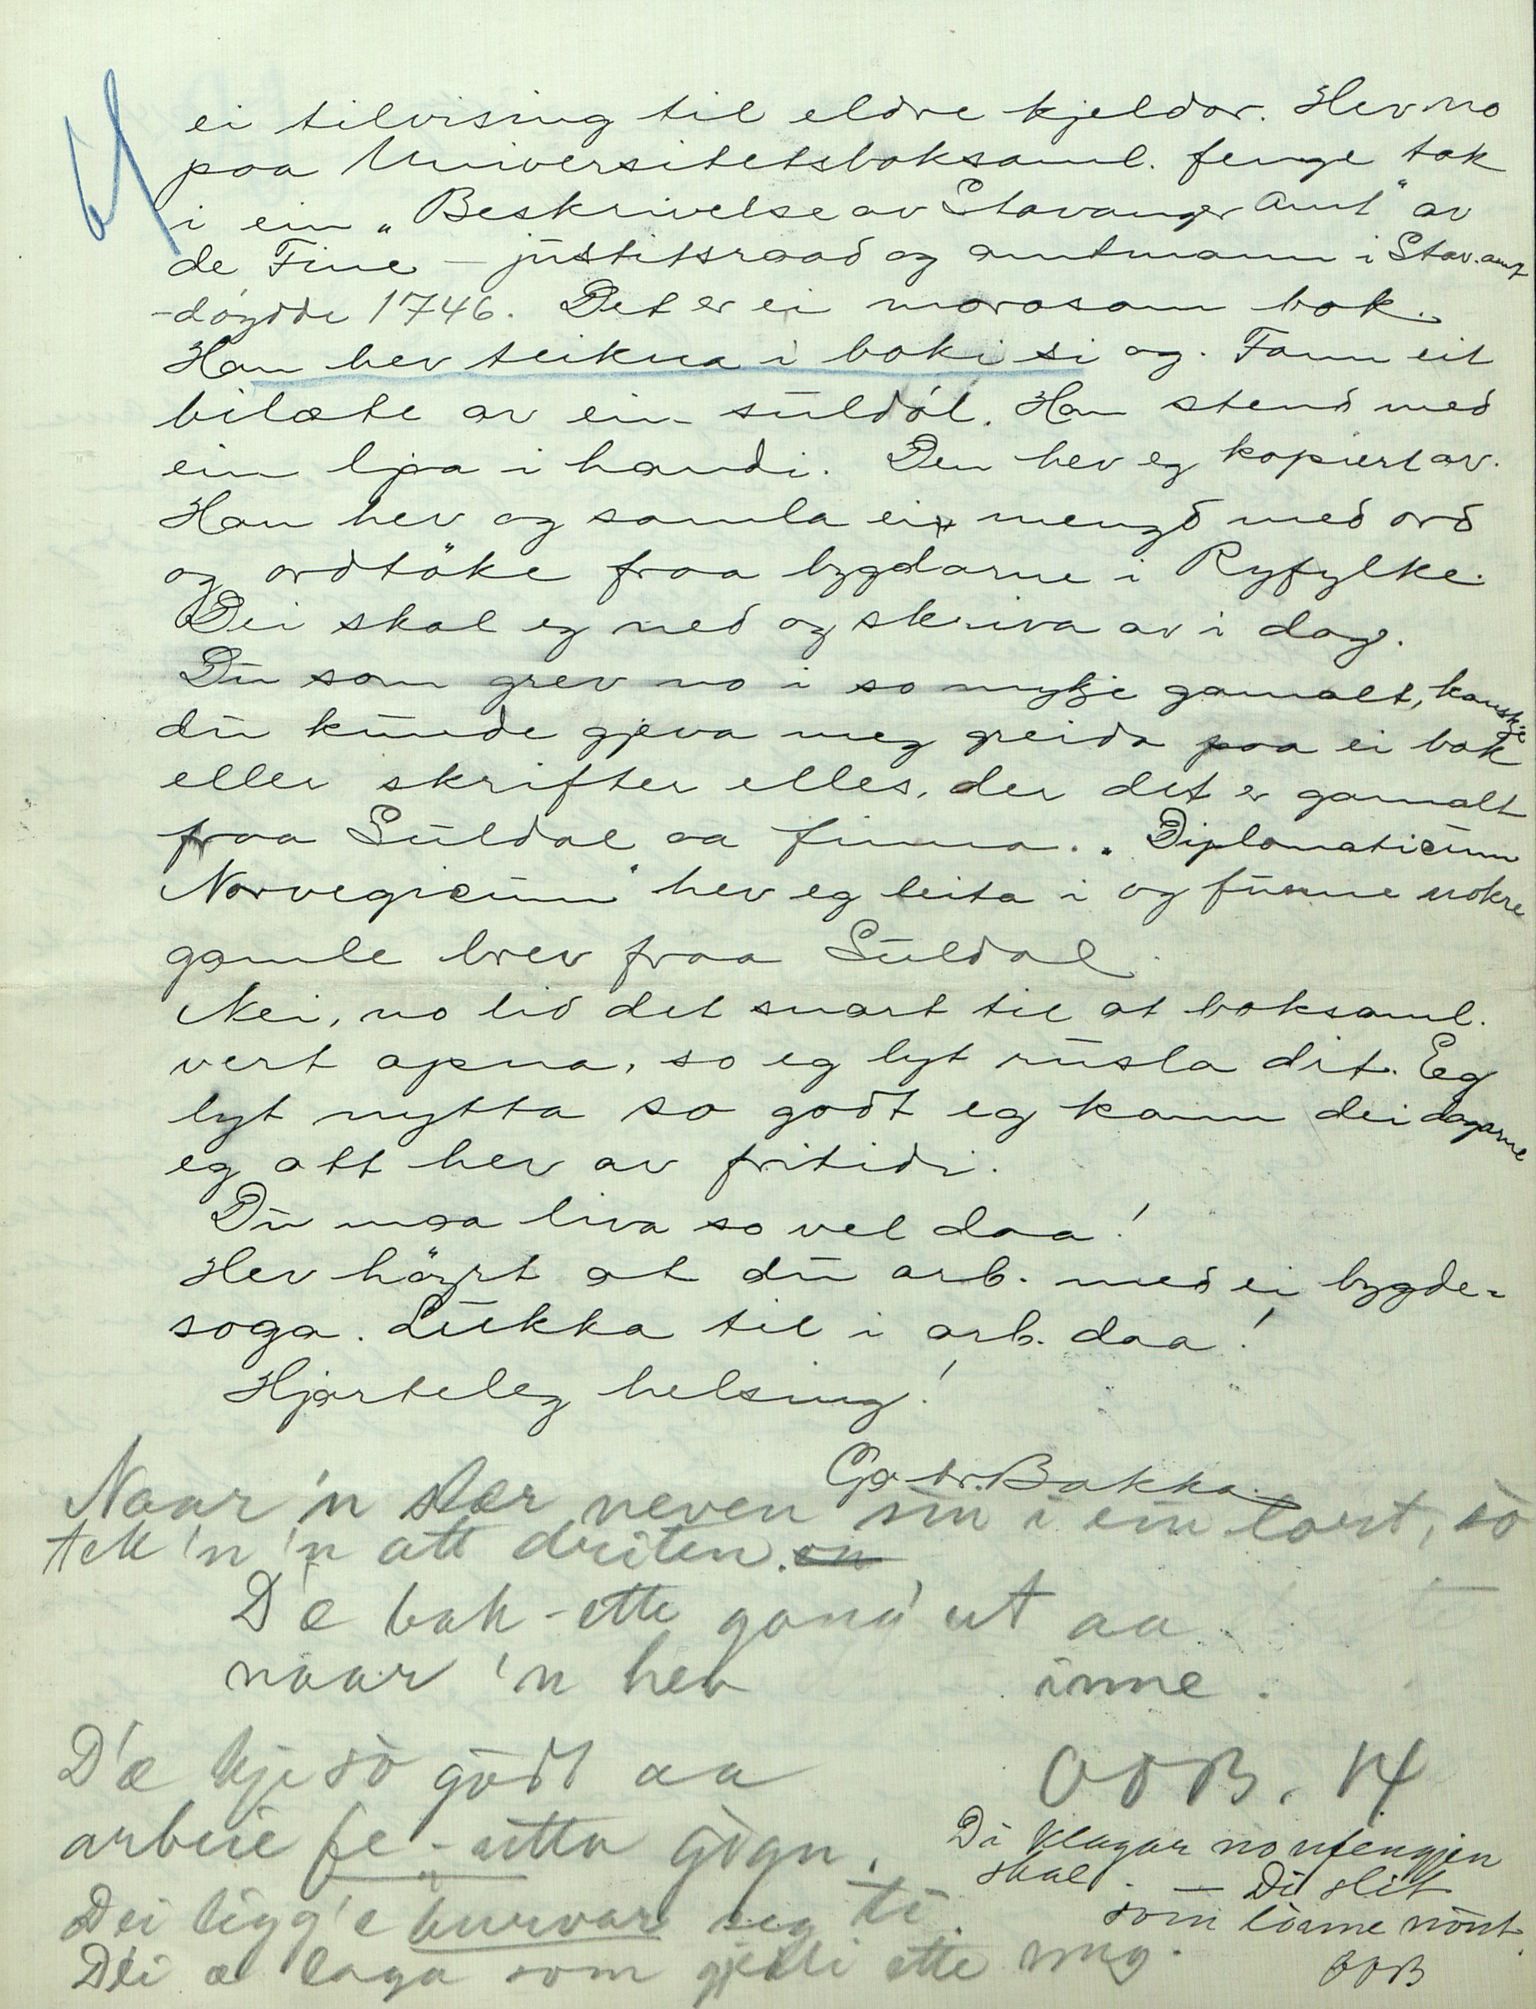 ei tilvising til eldre kjeldor. Hev no
paa Universitetsboksaml. fenge tak
i ein „Beskrivelse av Stavanger Amt" av
de Fine – justitsraad og amtmann i Stav. amt
– döydde 1746. Det er ei morosam bok.
Han hev teikna i boki si og. Fann eit
bilæte av ein suldöl. Han stend med
ein ljaa i handi. Den hev eg kopiert av.
Han hev og samla ei mengd med ord
og ordtöke fraa bygdarne i Ryfylke.
Dei skal eg ned og skriva av i dag.
Du som grev no i so mykje gamalt, kanskje
du kunde gjeva meg greida paa ei bok
eller skrifter elles, der det er gamalt
fraa Suldal aa finna. „Diplomaticum
Norvegicum" hev eg leita i og funne nokre
gamle brev fraa Suldal.
Nei, no lid det snart til at boksaml.
vert opna, so eg lyt rusla dit. Eg
lyt nytta so godt eg kann dei dagarne
eg att hev av fritidi.
Du maa liva so vel daa!
Hev höyrt at du arb. med ei bygde-
soga. Lukka til i arb. daa!
Hjarteleg helsing!
Gadr. Bakka.
Naar 'n slær neven sin i ein lort, so
tek 'n 'n att driten.
D'e bak-ette gang' ut aa
naar 'n hev inne.
D'æ kje so godt aa
arbeie fe - utta gogn.
Dei ligg'e kurvar seg ti.
Dei æ laga som gjelli ette meg.
OOB. 14
Di klagar no ufengjen
skal. — Di slit
som löame nönt.
OOB